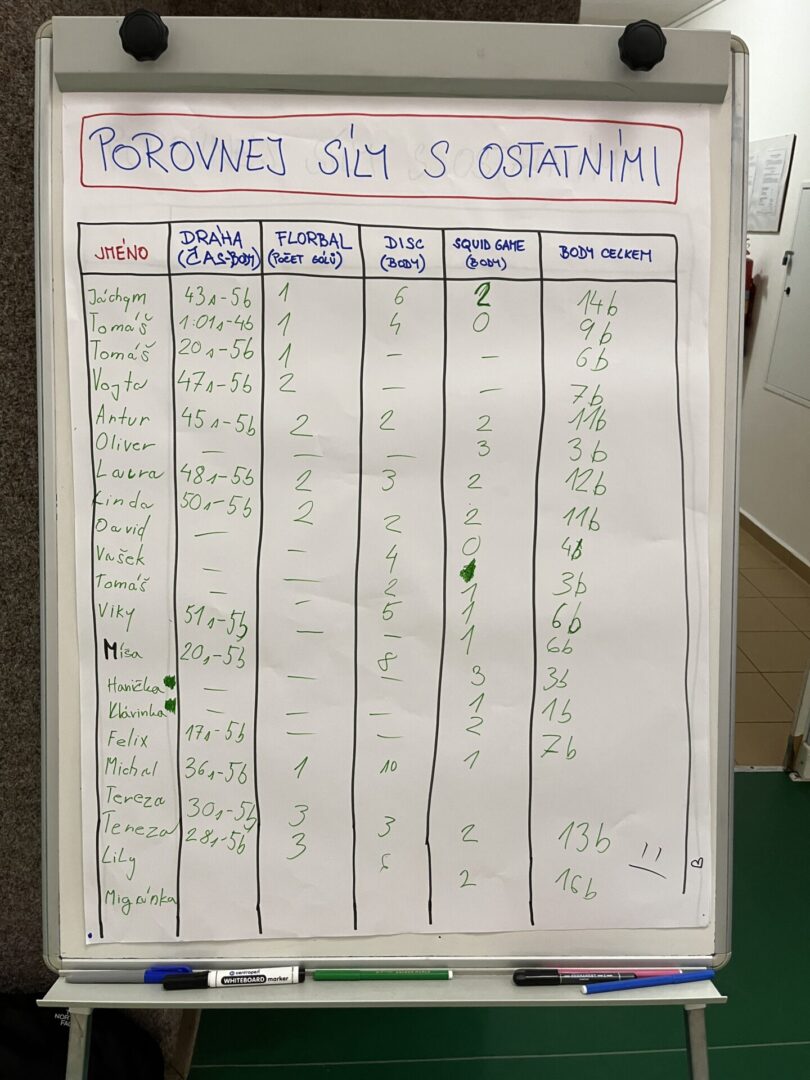 POROVNEJ SÍLY S OSTATNÍMI
JMÉNO DRÁHA (ČAS-BODY) FLORBAL (POČET GÓLŮ) DISC (BODY) SQUID GAME (BODY) BODY CELKEM
Jáchym 43s-5b 1 6 2 14b
Tomáš 1:01s-4b 1 4 0 9b
Tomáš 20s-5b 1 — — 6b
Vojta 47s-5b 2 — — 7b
Artur 45s-5b 2 2 2 11b
Oliver — — — 3 3b
Laura 48s-5b 2 3 2 12b
Linda 50s-5b 2 2 2 11b
David — — 4 0 4b
Vašek — — 2 1 3b
Tomáš — — 5 1 6b
Viky 51s-5b — — 1 6b
Míša 20s-5b 8
Hanička — — — 3 3b
Klárinka — — — 1 1b
Felix 17s-5b — — 2 7b
Michal 36s-5b 1 10 1
Tereza 30s-5b 3 3 2 13b
Tereza 28s-5b 3 2 16b
Lily
Migránka
WHITEBOARD marker